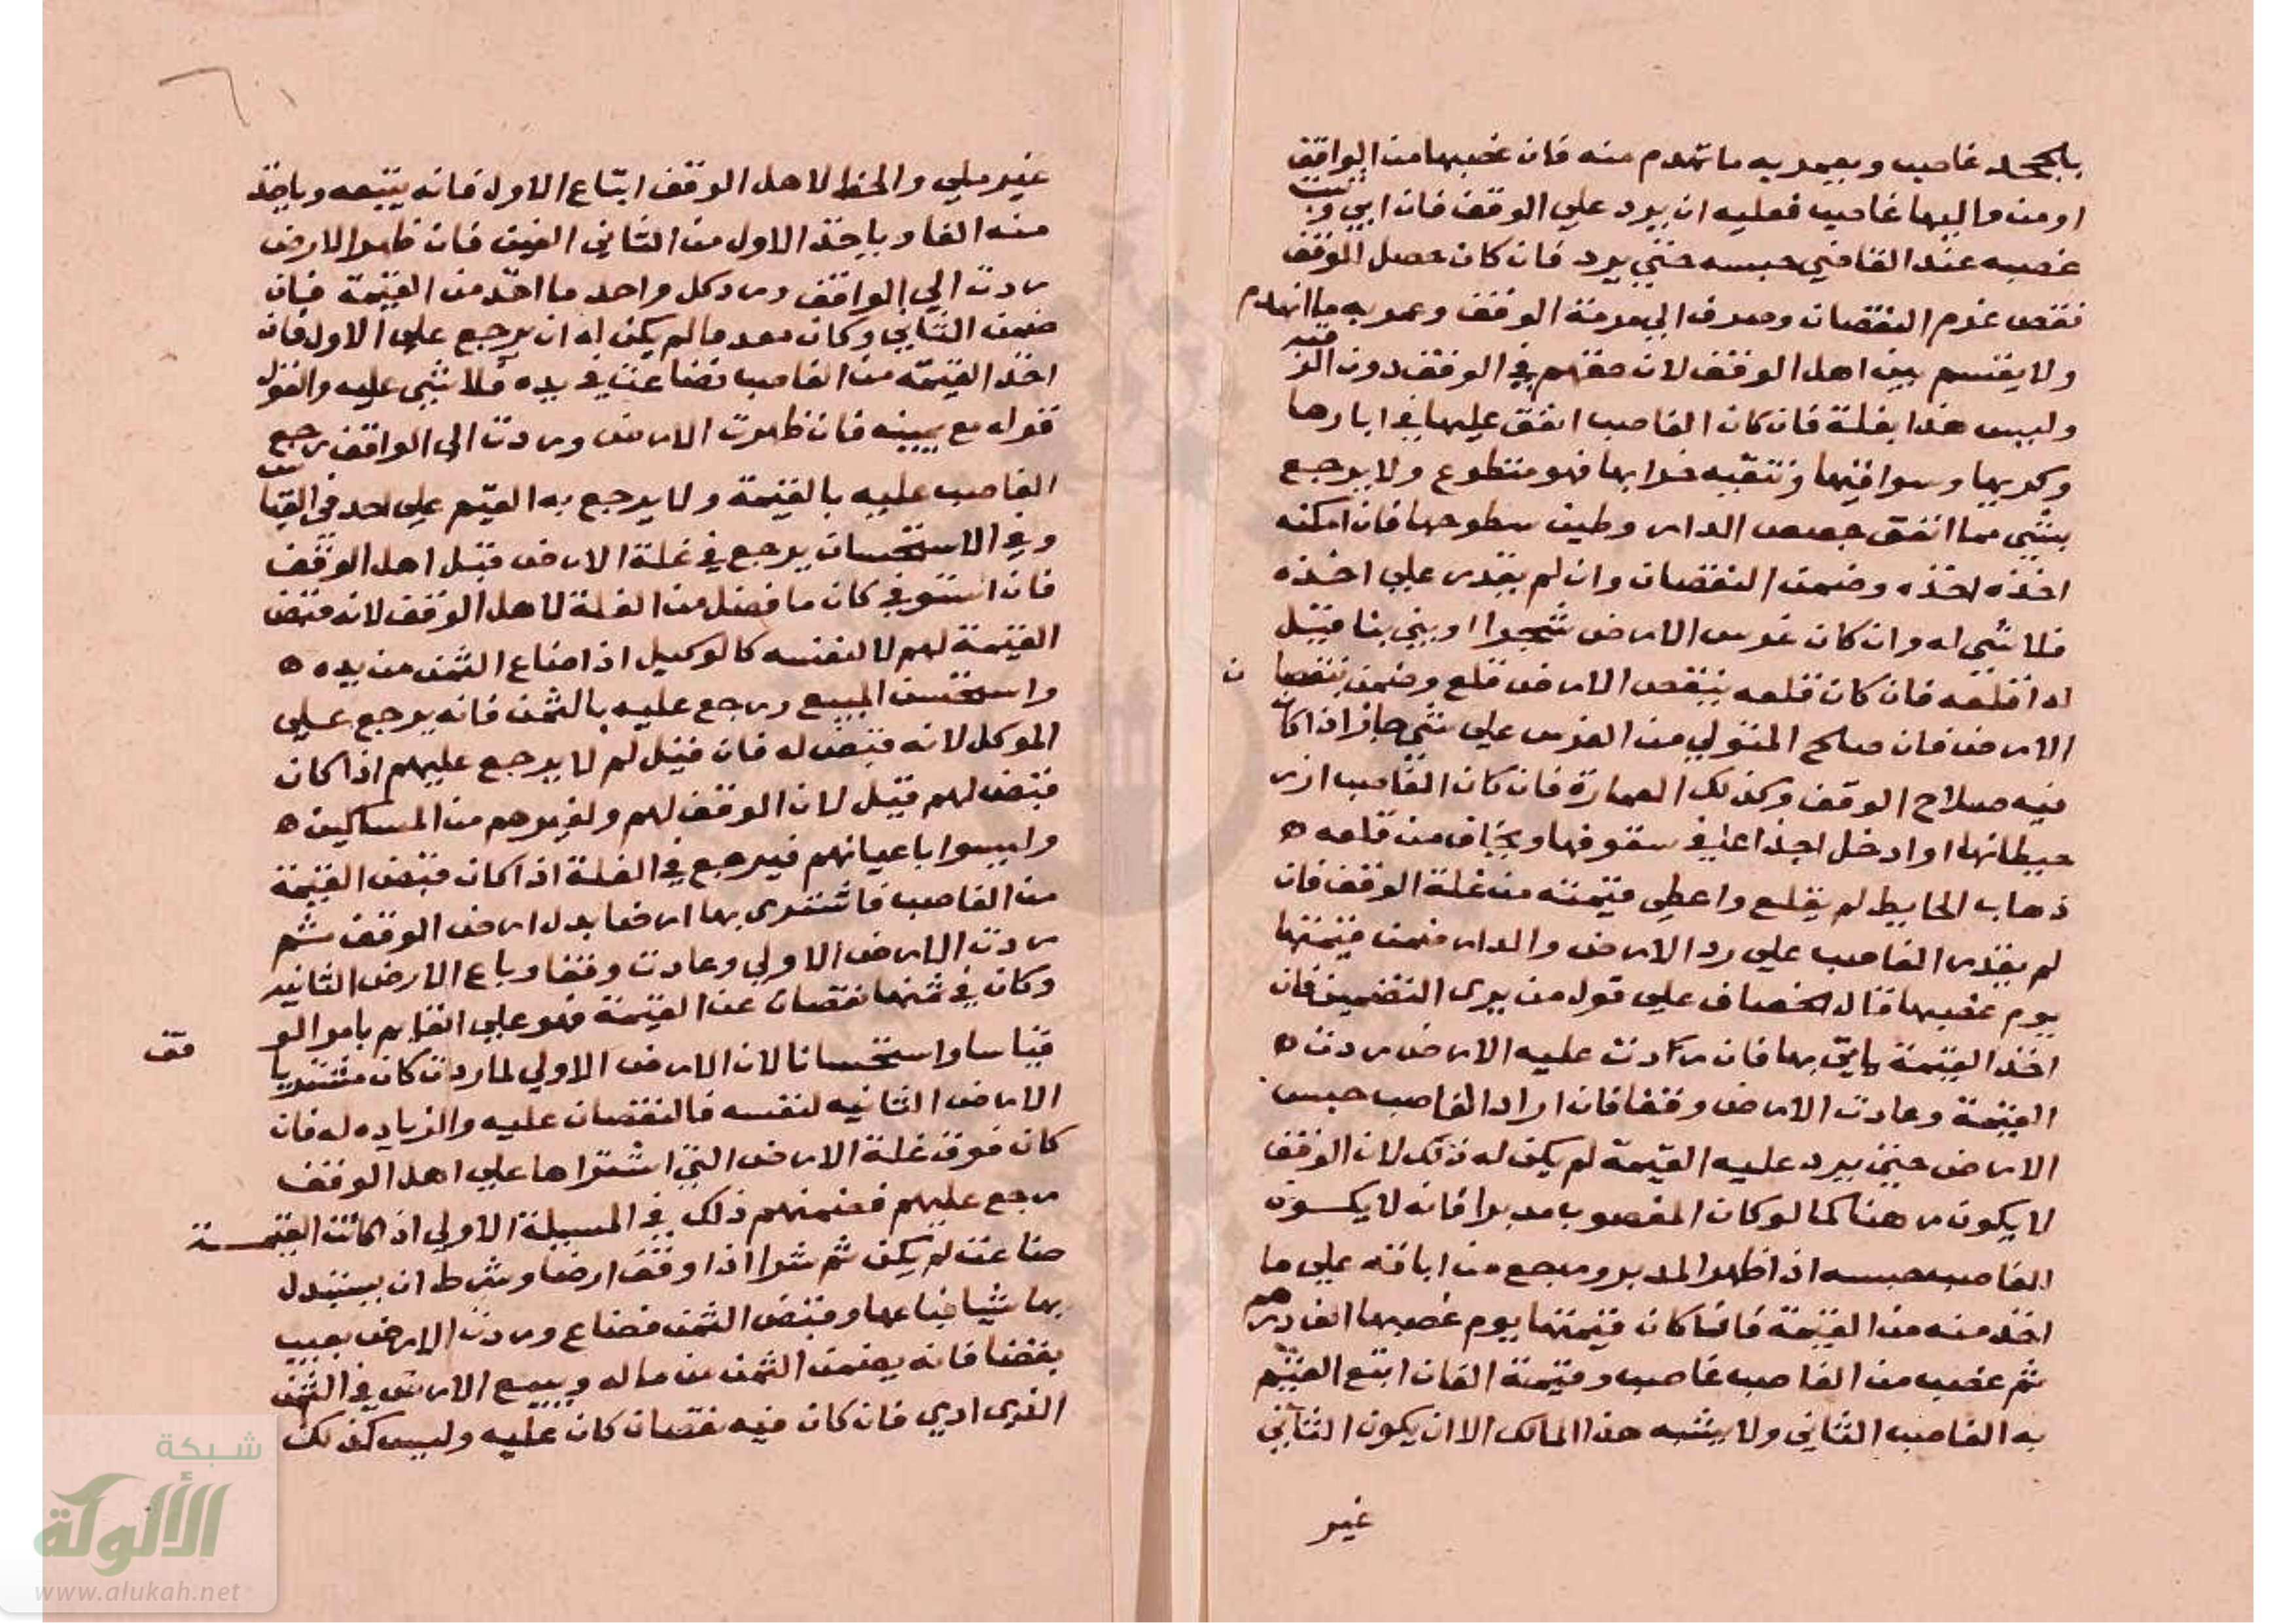 بالجحد غاصب ويعمر به ما تهدم منه فان غصبها من الواقف
او من واليها غاصب فعليه ان يرد علي الوقف فان ابي وثبت
غصبه عند القاضي حبسه حتي يرد فان كان حصل الوقف
نقص غرم النقصان وصرف الي مرمة الوقف وعمر به ما انهدم
منه
ولا يقسم بين اهل الوقف لان حقهم في الوقف دون الر
وليس هذا بغلة فان كان الغاصب انفق عليها في ابارها
وكريها وسواقيها وتنقيه خرابها فهو متطوع ولا يرجع
بشي مما انفق جصص الدار وطين سطوحها فان امكنه
اخذه اخذه وضمن النقصان وان لم يقدر علي اخذه
فلا شي له وان كان غرس الارض شجرا او بني بنا قيل
له اقلعه فان كان قلعه ينقص الارض قلع وضمن نقصا ن
الارض فان صالح المتولي من الغرس علي شي جاز اذا كان
فيه صلاح الوقف وكذلك العمارة فان كان الغاصب ازر
حيطانها او ادخل اجذاعا في سقوفها ويخاف من قلعه ه
ذهاب الحايط لم يقلع واعطي قيمته من غلة الوقف فان
لم يقدر الغاصب علي رد الارض والدار ضمن قيمتها
يوم غصبها قال الخصاف علي قول من يري التضمين فان
اخذ القيمة بها فان ردت عليه الارض ردت ه
القيمة وعادت الارض وقفا فان اراد الغاصب حبس
الارض حتي يرد عليه القيمة لم يكن له ذلك لان الوقف
لا يكون رهنا كما لو كان المغصوب مدبرا فانه لا يكون
الغاصب حبسه اذا ظهر المدبر ورجع من اباقه علي ما
اخذ منه من القيمة فان كان قيمتها يوم غصبها الف درهم
ثم غصب من الغاصب غاصب وقيمته الفان اتبع القيم
به الغاصب الثاني ولا يشبه هذا المالك الا ان يكون الثاني
غير
غير ملي والحظ لاهل الوقف اتباع الاول فانه يتبعه وياخذ
منه الفا وياخذ الاول من الثاني الفين فان ظهر الارض
ردت الي الواقف ورد كل واحد ما اخذ من القيمة فان
ضمن الثاني وكان معدما لم يكن له ان يرجع علي الاول فان
اخذ القيمة من الغاصب فضاعت في يده فلا شي عليه والقول
قوله مع يمينه فان ظهرت الارض وردت الي الواقف رجع
الغاصب عليه بالقيمة ولا يرجع به القيم علي احد في القياس
وفي الاستحسان يرجع في غلة الارض قبل اهل الوقف
فان استوفي كان ما فضل من الغلة لاهل الوقف لانه قبض
القيمة لهم لا لنفسه كالوكيل اذا ضاع الثمن من يده ه
واستحسن المبيع ورجع عليه بالثمن فانه يرجع علي
الموكل لانه قبض له فان قيل لم لا يرجع عليهم اذا كان
قبض لهم قيل لان الوقف لهم ولغيرهم من المساكين ه
وليسوا باعيانهم فيرجع في الغلة اذا كان قبض القيمة
من الغاصب فاشتري بها ارضا بدل ارض الوقف ثم
ردت الارض الاولي وعادت وقفا وباع الارض الثانيه
وكان في ثمنها نقصان عن القيمة فهو علي القايم بامر الو قف
قياسا واستحسانا لان الارض الاولي لما ردت كان مشتريا
الارض الثانيه لنفسه فالنقصان عليه والزياده له فان
كان فرق غلة الارض التي اشتراها علي اهل الوقف
رجع عليهم فضمنهم ذلك في المسيلة الاولي اذا كانت القيمة
ضاعت لم يكن ثم شرا اذا وقف ارضا وشرط ان يستبدل
بها شيا فباعها وقبض الثمن فضاع وردت الارض بعيب
بقضا فانه يضمن الثمن من ماله ويبيع الارض في الثمن
الذي ادي فان كان فيه نقصان كان عليه وليس كذلك
شبكة
الألوكة
www.alukah.net